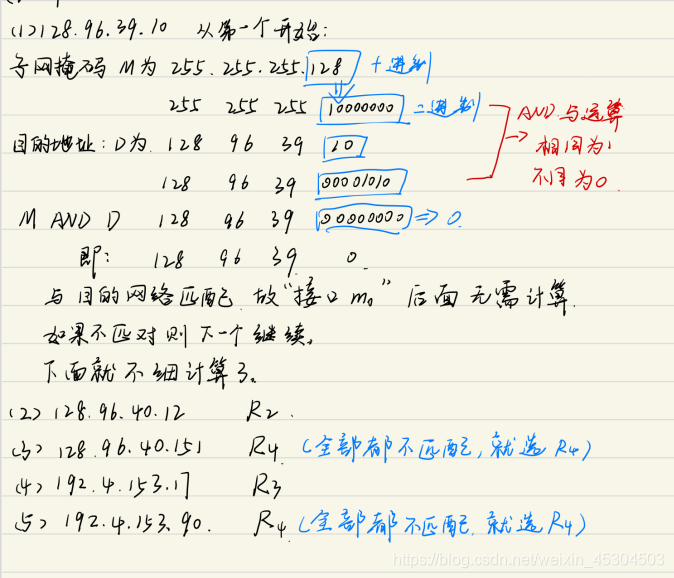 (1) 128.96.39.10 从第一个开始:
子网掩码 M为 255.255.255.128 十进制
255 255 255 10000000 二进制
目的地址: D为 128 96 39 10
128 96 39 00001010
AND 与运算
相同为1
不同为0.
M AND D 128 96 39 00000000 => 0.
即: 128 96 39 0
与目的网络匹配. 故"接口 m0" 后面无需计算.
如果不匹对则下一个继续。
下面就不细计算了。
(2) 128.96.40.12 R2.
(3) 128.96.40.151 R4 (全部都不匹配, 就选R4)
(4) 192.4.153.17 R3
(5) 192.4.153.90. R4 (全部都不匹配. 就选R4)
https://blog.csdn.net/weixin_45304503